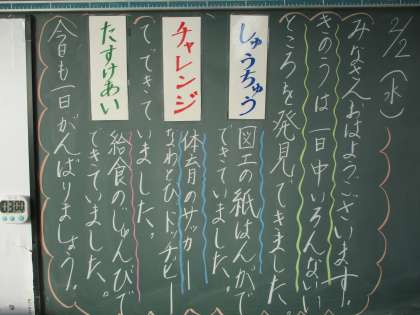 2/2(水)
みなさんおはようございます。
きのうは一日中いろんないい
ところを発見できました。
しゅうちゅう
図工の紙はんかで
できていました。
チャレンジ
体育のサッカー
なわとびドッヂビー
でできて
いました。
たすけあい
給食のじゅんびで
できていました。
今日も一日がんばりましょう。